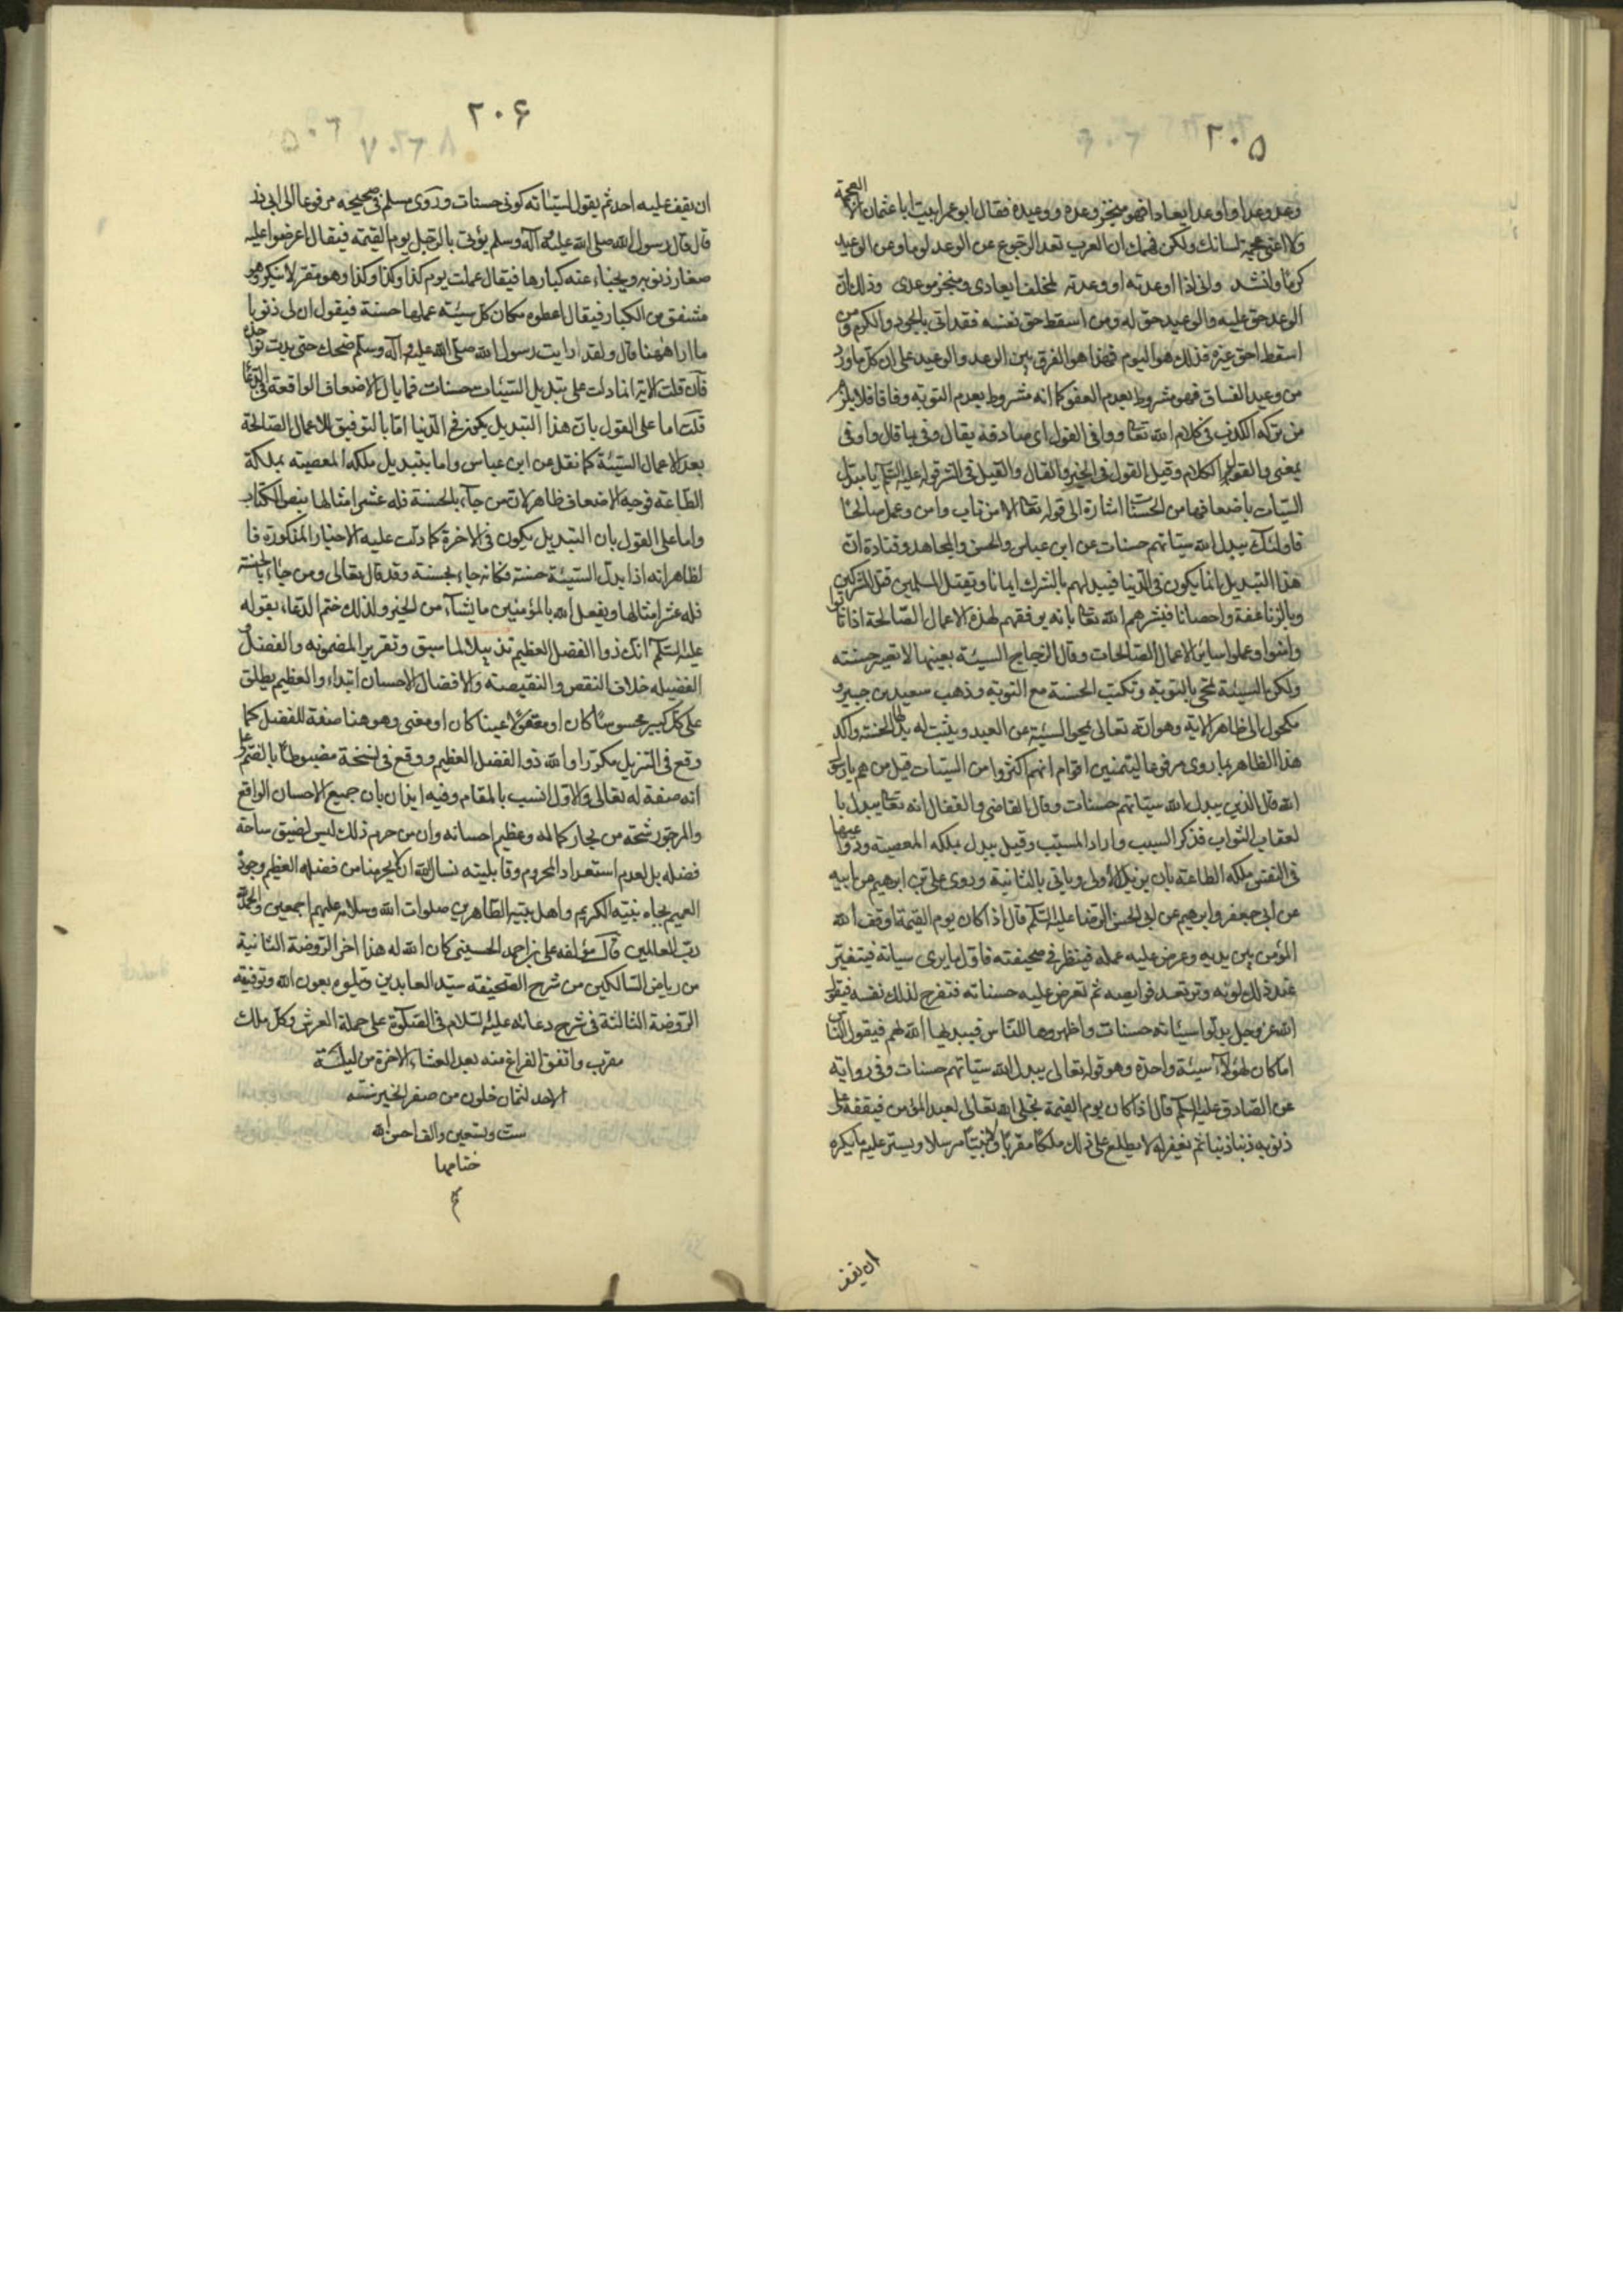 ٢٠۵
وعد وعدا واوعد ايعادا فهو منجز وعده ووعيده فقال ابو عمرو اتيت ابا عثمان من العجمة
فلا اعنى عجمة لسانك ولكن فهمك ان العرب تعد الرجوع عن الوعد لوما وعن الوعيد
كرما وانشد وانى اذا اوعدته او وعدته لمخلف ايعادى ومنجز موعدى وذلك ان
الوعد حق عليه والوعيد حق له ومن اسقط حق نفسه فقد اتى بالجود والكرم ومن
اسقط حق غيره فذلك هو اللوم فهذا هو الفرق بين الوعد والوعيد على ان كل ما ورد
من وعيد الفساق فهو مشروط بعدم العفو كما انه مشروط بعدم التوبة وفاقا فلا يلزم
من تركه الكذب فى كلام الله تعالى ووافى القول اى صادقه يقال وفى بما قال واوفى
بمعنى والقول الكلام وقيل القول فى الخير والقال والقيل فى الشر قوله عليه السلام يا مبدل
السيئات باضعافها من الحسنات اشارة الى قوله تعالى الا من تاب وامن وعمل صالحا
فاولئك يبدل الله سيئاتهم حسنات عن ابن عباس والحسن والمجاهد وقتادة ان
هذا التبديل انما يكون فى الدنيا فيبدلهم بالشرك ايمانا وبقتل المسلمين قتل المشركين
وبالزنا عفة واحصانا فبشرهم الله تعالى بانه يوفقهم لهذه الاعمال الصالحة اذا تابوا
وامنوا وعملوا سائر الاعمال الصالحات وقال الزجاج السيئة بعينها لا تصير حسنة
ولكن السيئة تمحى بالتوبة وتكتب الحسنة مع التوبة وذهب سعيد بن جبير و
مكحول الى ظاهر الاية وهو انه تعالى يمحو السيئة عن العبد ويثبت له بدلها الحسنة واكد
هذا الظاهر بما روى مرفوعا ليتمنين اقوام انهم اكثروا من السيئات قيل من هم يا رسول
الله قال الذين يبدل الله سيئاتهم حسنات وقال القاضى والقفال انه تعالى يبدل با
لعقاب الثواب فذكر السبب واراد المسبب وقيل يبدل ملكه المعصية ودواعيها
فى النفس بملكه الطاعة بان يزيل الاولى وياتى بالثانية وروى على بن ابرهيم عن ابيه
عن ابى جعفر وابرهيم عن ابى الحسن الرضا عليه السلام قال اذا كان يوم القيمة اوقف الله
المؤمن بين يديه وعرض عليه عمله فينظر فى صحيفته فاول ما يرى سياته فيتغير
عند ذلك لونه وترتعد فرايصه ثم تعرض عليه حسناته فتفرح لذلك نفسه فيقول
الله عز وجل بدلوا سيئاته حسنات واظهروها للناس فيبدلها الله لهم فيقول الناس
اما كان لهؤلاء سيئة واحدة وهو قوله تعالى يبدل الله سيئاتهم حسنات وفى رواية
عن الصادق عليه السلام قال اذا كان يوم القيمة تجلى الله تعالى لعبده المؤمن فيقفه على
ذنوبه ذنبا ذنبا ثم يغفر له لا يطلع على ذلك ملكا مقربا ولا نبيا مرسلا ويستر عليه ما يكره
ان يقف
٢٠۶
ان يقف عليه احد ثم يقول لسيئاته كونى حسنات وروى مسلم فى صحيحه مرفوعا الى ابى ذر
قال قال رسول الله صلى الله عليه وآله وسلم يؤتى بالرجل يوم القيمة فيقال اعرضوا عليه
صغار ذنوبه ويخباء عنه كبارها فيقال عملت يوم كذا وكذا وكذا وهو مقر لا ينكر وهو
مشفق من الكبار فيقال اعطوه مكان كل سيئة عملها حسنة فيقول ان لى ذنوبا
ما اراها ههنا قال ولقد رايت رسول الله صلى الله عليه وآله وسلم ضحك حتى بدت نواجذه
فان قلت الاية انما دلت على تبديل السيئات حسنات فما بال الاضعاف الواقعة فى الدعا
قلت اما على القول بان هذا التبديل يكون فى الدنيا اما بالتوفيق للاعمال الصالحة
بعد الاعمال السيئة كما نقل عن ابن عباس واما بتبديل ملكه المعصية بملكة
الطاعة فوجه الاضعاف ظاهر لان من جاء بالحسنة فله عشر امثالها بنص الكتاب
واما على القول بان التبديل يكون فى الاخرة كما دلت عليه الاخبار المذكورة فا
لظاهر انه اذا بدل السيئة حسنة فكانه جاء بحسنة وقد قال تعالى ومن جاء بالحسنة
فله عشر امثالها ويفعل الله بالمؤمنين ما يشاء من الخير ولذلك ختم الدعاء بقوله
عليه السلام انك ذو الفضل العظيم تذييلا لما سبق وتقرير المضمونه والفضل و
الفضيله خلاف النقص والنقيصة والافضال الاحسان ابتداء والعظيم يطلق
على كل كبير محسوسا كان او معقولا عينا كان او معنى وهو هنا صفة للفضل كما
وقع فى التنزيل مكررا والله ذو الفضل العظيم ووقع فى نسخة مضبوطا بالضم على
انه صفة له تعالى والاول انسب بالمقام وفيه ايذان بان جميع الاحسان الواقع
والمرجو رشحة من بحار كماله وعظيم احسانه وان من حرم ذلك ليس لضيق ساحة
فضله بل لعدم استعداد المحروم وقابليته نسال الله ان لا يحرمنا من فضله العظيم وجوده
العميم بجاه نبيه الكريم واهل بيته الطاهرين صلوات الله وسلامه عليهم اجمعين والحمد لله
رب العالمين قال مؤلفه على بن احمد الحسينى كان الله له هذا اخر الروضة الثانية
من رياض السالكين من شرح الصحيفة سيد العابدين ويتلوه بعون الله وتوفيقه
الروضة الثالثة فى شرح دعائه عليه السلام فى الصلوة على حملة العرش وكل ملك
مقرب واتفق الفراغ منه بعد العشاء الاخرة من ليلة
الاحد لثمان خلون من صفر الخير سنة
ست وتسعين والف احسن الله
ختامها
م